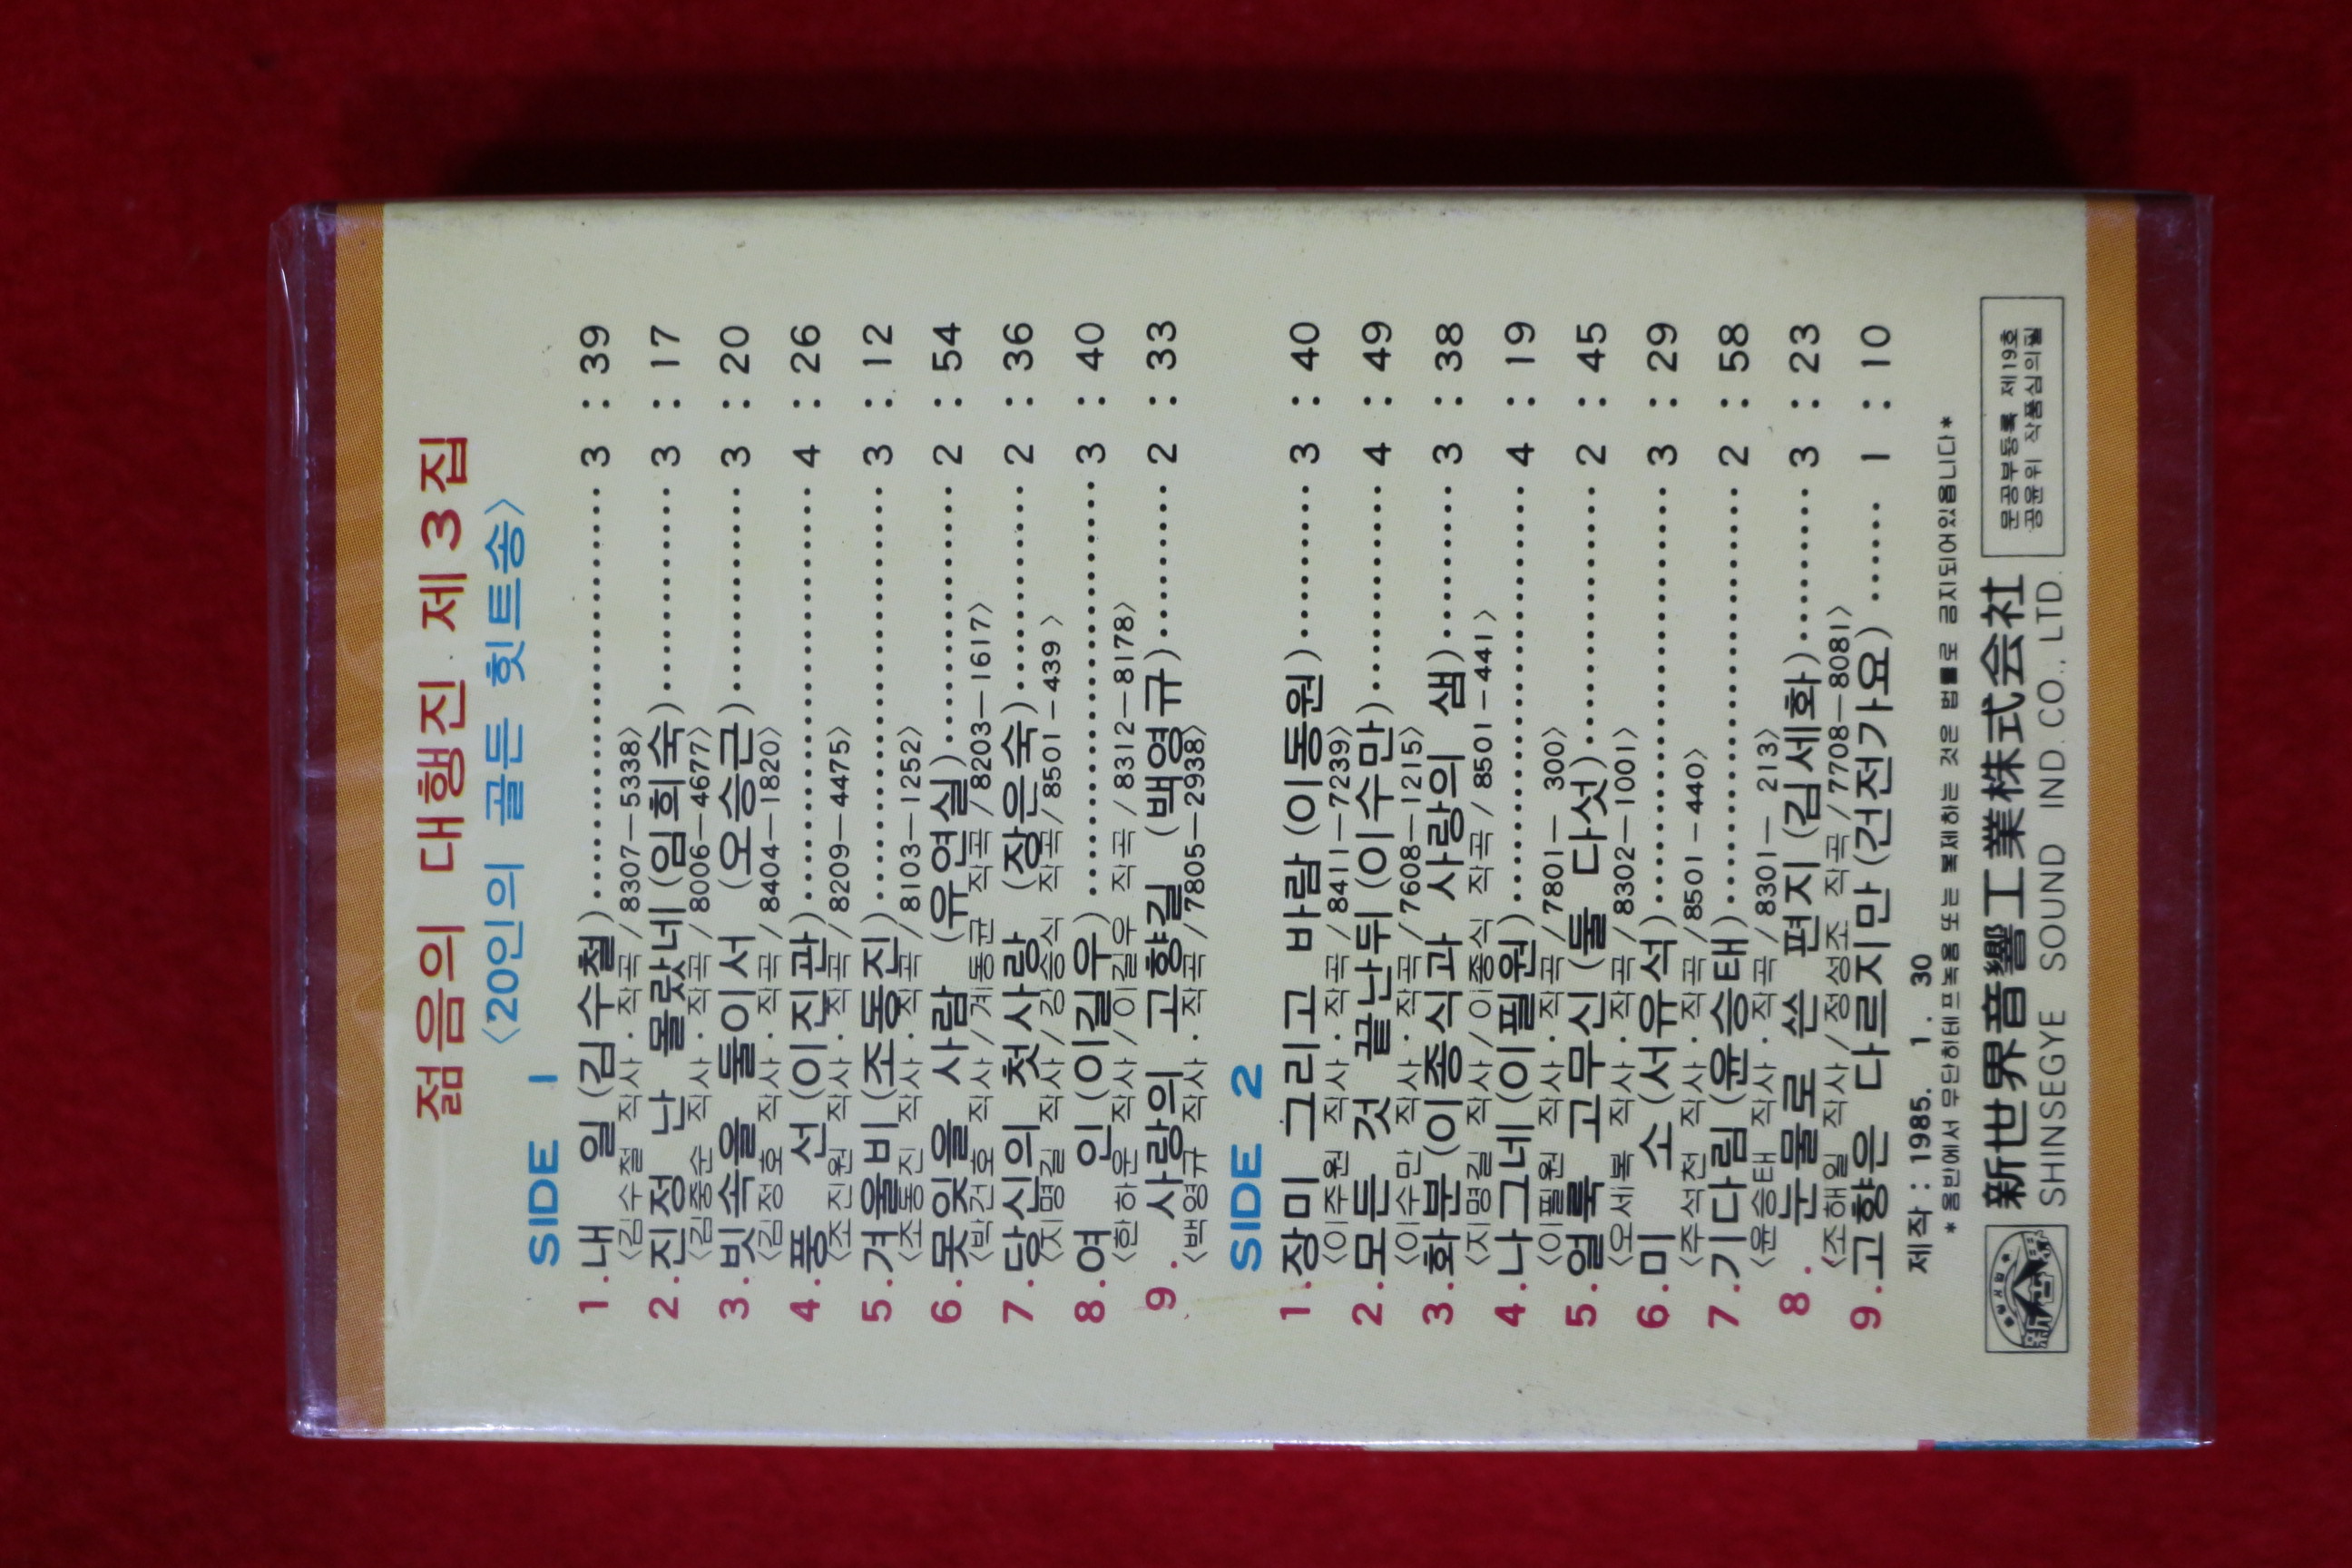 젊음의 대행진 제3집
〈20인의 골든 힛트송〉
SIDE 1
1.내 일(김수철)………………3 : 39
〈김수철 작사·작곡/8307—5338〉
2.진정 난 몰랐네(임희숙)…………3 : 17
〈김중순 작사·작곡/8006—4677〉
3.빗속을 둘이서 (오승근)…………3 : 20
〈김정호 작사·작곡/8404—1820〉
4.풍 선(이진관)………………4 : 26
〈조진원 작사·작곡/8209—4475〉
5.겨울비(조동진)………………3 : 12
〈조동진 작사·작곡/8103—1252〉
6.못잊을 사람 (유연실)…………2 : 54
〈박건호 작사/계동균 작곡/8203—1617〉
7.당신의 첫사랑 (장은숙)…………2 : 36
〈지명길 작사/김승식 작곡/8501—439〉
8.여 인(이길우)………………3 : 40
〈한하운 작사/이길우 작곡/8312—8178〉
9. 사랑의 고향길 (백영규)………2 : 33
〈백영규 작사·작곡/7805—2938〉
SIDE 2
1.장미 그리고 바람(이동원)………3 : 40
〈이주원 작사·작곡/8411—7239〉
2.모든 것 끝난뒤(이수만)…………4 : 49
〈이수만 작사·작곡/7608—1215〉
3.화분(이종식과 사랑의 샘)………3 : 38
〈지명길 작사/이종식 작곡/8501—441〉
4.나그네(이필원)………………4 : 19
〈이필원 작사·작곡/7801— 300〉
5.얼룩 고무신(둘 다섯)…………2 : 45
〈오세복 작사·작곡/8302—1001〉
6.미 소(서유석)………………3 : 29
〈주석천 작사·작곡/8501—440〉
7.기다림(윤승태)………………2 : 58
〈윤승태 작사·작곡/8301— 213〉
8. 눈물로 쓴 편지(김세화)………3 : 23
〈조해일 작사/정성조 작곡/7708—8081〉
9.고향은 다르지만(건전가요)……1 : 10
제작 : 1985. 1. 30
*음반에서 무단히테프녹음 또는 복제하는 것은 법률로 금지되어있읍니다*
新世界音響工業株式会社
SHINSEGYE SOUND IND. CO., LTD.
문공부등록 제19호
공윤위 작품심의필